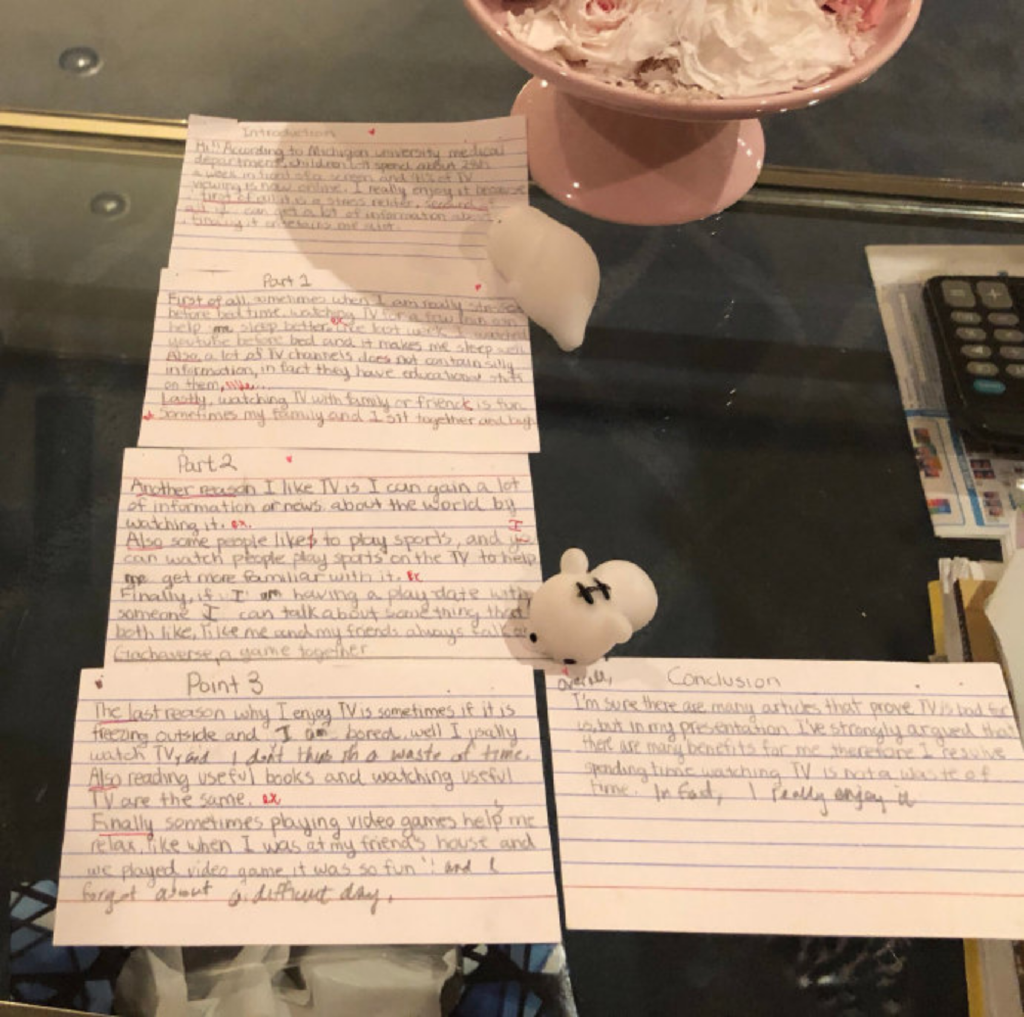 Introduction
Hi!! According to Michigan university medical
department, children 6-11 spend about 28h
a week in front of a screen and 98% of TV
viewing is now online. I really enjoy it because
first of all it is a stress reliever, second of
all I can get a lot of information about
finally it entertains me alot.
Part 1
First of all, sometimes when I am really stressed
before bed time, watching TV for a few min can
help me sleep better. like last week I watched
youtube before bed and it makes me sleep well
Also, a lot of TV channels does not contain silly
information, in fact they have educational stuffs
on them, like...
Lastly, watching TV with family or friends is fun
Sometimes my family and I sit together and laugh
Part 2
Another reason I like TV is I can gain a lot
of information or news about the world by
watching it. ex.
Also some people like to play sports, and I
can watch people play sports on the TV to help
me get more familiar with it. Ex
Finally, if I am having a play date with
someone I can talk about something that
both like, like me and my friends always talk
Gachaverse, a game together
Point 3
The last reason why I enjoy TV is sometimes if it is
freezing outside and I am bored, well I usally
watch TV, and I don't think it's a waste of time.
Also reading useful books and watching useful
TV are the same. ex
Finally sometimes playing video games help me
relax, like when I was at my friend's house and
we played video game it was so fun!! and I
forgot about a difficult day.
overall,
Conclusion
I'm sure there are many articles that prove TV is bad for
us, but in my presentation I've strongly argued that
there are many benefits for me, therefore I resolve
spending time watching TV is not a waste of
time. In fact, I really enjoy it